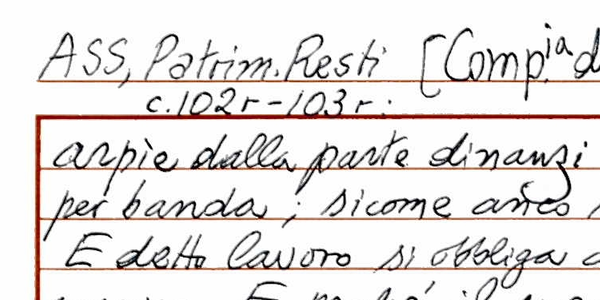 ASS, Patrim. Resti [Comp.ia d
c. 102r-103r:
arpie dalla parte dinanzi
per banda; sicome anco
E detto lavoro si obbliga
E perché il